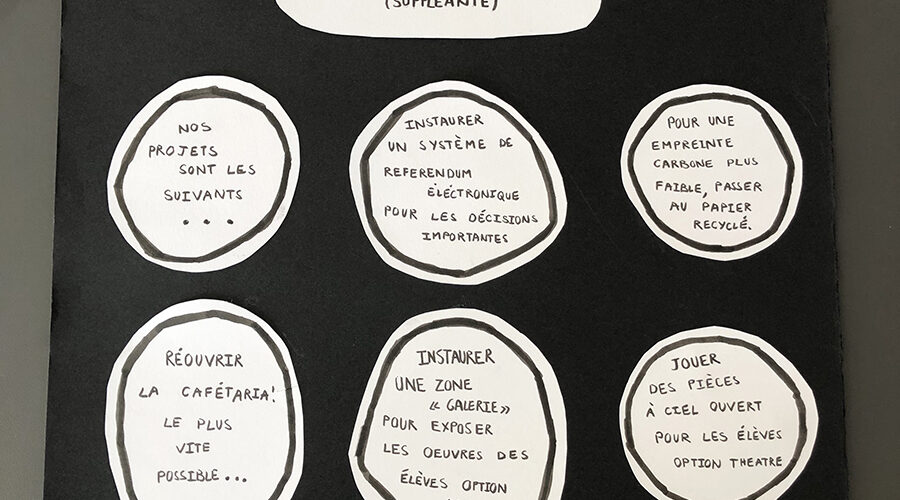 (SUPPLÉANTE)
NOS
PROJETS
SONT LES
SUIVANTS
...
INSTAURER
UN SYSTÈME DE
REFERENDUM
ÉLÉCTRONIQUE
POUR LES DÉCISIONS
IMPORTANTES
POUR UNE
EMPREINTE
CARBONE PLUS
FAIBLE, PASSER
AU PAPIER
RECYCLÉ.
RÉOUVRIR
LA CAFÉTARIA!
LE PLUS
VITE
POSSIBLE...
INSTAURER
UNE ZONE
"GALERIE"
POUR EXPOSER
LES OEUVRES DES
ÉLÈVES OPTION
JOUER
DES PIÈCES
À CIEL OUVERT
POUR LES ÉLÈVES
OPTION THEATRE